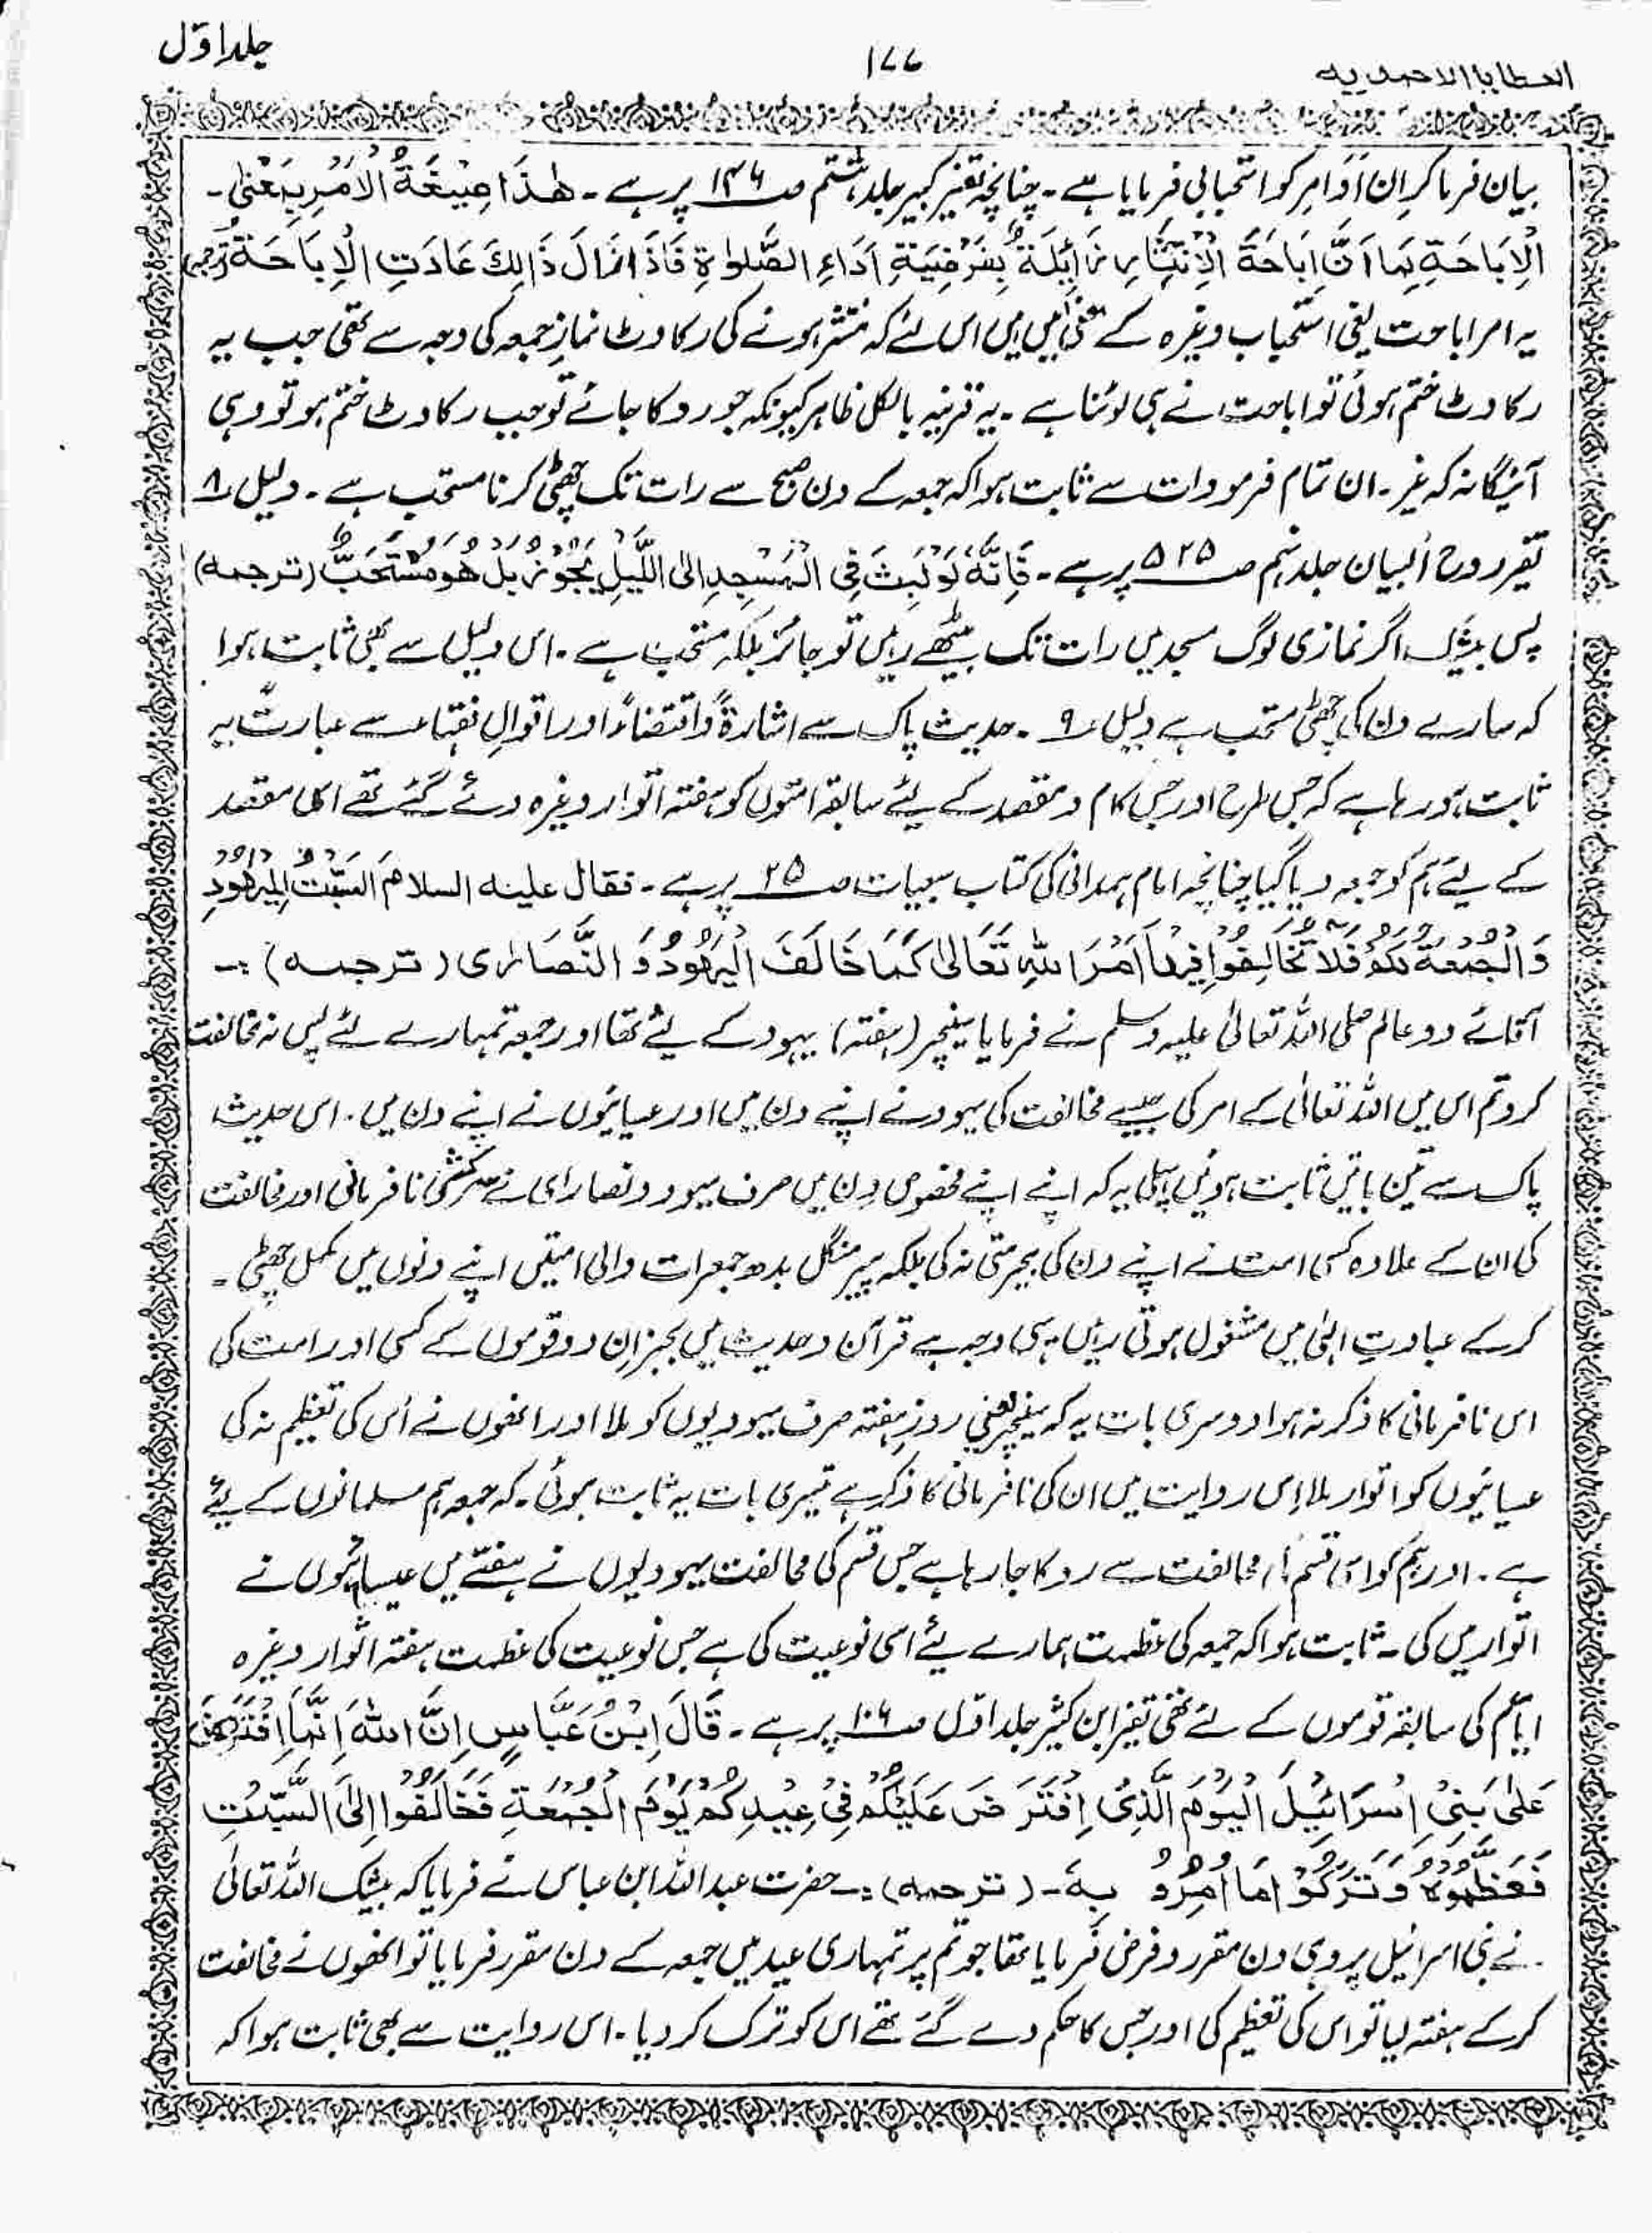 العطایا الاحمدیہ
۱۷۷
جلد اوّل
بیان فرما کر اِن اَوَامِر کو استحبابی فرمایا ہے۔ چنانچہ تفسیر کبیر جلد ہشتم صـ۱۴۶ پر ہے۔ ھٰذَا صِیْغَۃُ الْاَمْرِ بِمَعْنٰی۔
الْاِبَاحَۃِ بِمَا اَنَّ اِبَاحَۃَ الْاِنْتِشَارِ زَائِلَۃٌ بِفَرْضِیَۃِ اَدَاءِ الصَّلوٰۃِ فَاِذَا زَالَ ذَالِكَ عَادَتِ الْاِبَاحَۃُ (ترجمہ)
یہ امر اباحت یعنی استحباب وغیرہ کے معنٰی میں ہیں اس لئے کہ منتشر ہونے کی رکاوٹ نمازِ جمعہ کی وجہ سے تھی جب یہ
رکاوٹ ختم ہوئی تو اباحت نے ہی لوٹنا ہے۔ یہ قرینہ بالکل ظاہر کیونکہ جو روکا جائے تو جب رکاوٹ ختم ہو تو وہی
آئیگا نہ کہ غیر۔ ان تمام فرمودات سے ثابت ہوا کہ جمعہ کے دن صبح سے رات تک چھٹی کرنا مستحب ہے۔ دلیل ۸
تفسیر روح البیان جلد نہم صـ۵۲۵ پر ہے۔ فَاِنَّہٗ لَوْ لَبِثَ فِی الْمَسْجِدِ اِلَی اللَّیْلِ یَجُوْزُ بَلْ ھُوَ مُسْتَحَبٌّ (ترجمہ)
پس بیشک اگر نمازی لوگ مسجد میں رات تک بیٹھے رہیں تو جائز بلکہ مستحب ہے۔ اس دلیل سے بھی ثابت ہوا
کہ سارے دن کی چھٹی مستحب ہے دلیل ۹۔ حدیث پاک سے اشارۃً و اقتضاءً اور اقوالِ فقہاء سے عبارتًا یہ
ثابت ہو رہا ہے کہ جس طرح اور جس کام و مقصد کے لیئے سابقہ امتوں کو ہفتہ اتوار وغیرہ دئے گئے تھے اسی مقصد
کے لیئے ہم کو جمعہ دیا گیا چنانچہ امام ہمدانی کی کتاب سبعیات صـ۲۵ پر ہے۔ فقال علیہ السلام اَلسَّبْتُ لِلْیَھُوْدِ
وَالْجُمْعَۃُ لَکُمْ فَلَا تُخَالِفُوْا فِیْھَا اَمْرَ اللّٰہِ تَعَالٰی کَمَا خَالَفَ الْیَھُوْدُ وَ النَّصَارٰی (ترجمہ):۔
آقائے دو عالم صلی اللہ تعالیٰ علیہ وسلم نے فرمایا سنیچر (ہفتہ) یہود کے لیئے تھا اور جمعہ تمہارے لئے پس نہ مخالفت
کرو تم اس میں اللہ تعالیٰ کے امر کی جیسے مخالفت کی یہود نے اپنے دن میں اور عیسائیوں نے اپنے دن میں۔ اس حدیث
پاک سے تین باتیں ثابت ہوئیں پہلی یہ کہ اپنے اپنے مخصوص دن میں صرف یہود و نصارٰی نے سرکشی نافرمانی اور مخالفت
کی ان کے علاوہ کسی امت نے اپنے دن کی بحرمتی نہ کی بلکہ پیر منگل بدھ جمعرات والی امتیں اپنے دنوں میں مکمل چھٹی۔
کر کے عبادتِ الٰہی میں مشغول ہوتی رہیں یہی وجہ ہے قرآن و حدیث میں بجز اِن دو قوموں کے کسی اور امت کی
اس نافرمانی کا ذکر نہ ہوا دوسری بات یہ کہ سنیچر یعنی روزِ ہفتہ صرف یہودیوں کو ملا اور انھوں نے اُس کی تعظیم نہ کی
عیسائیوں کو اتوار ملا اِس روایت میں ان کی نافرمانی کا ذکر ہے تیسری بات یہ ثابت ہوئی۔ کہ جمعہ ہم مسلمانوں کے لیئے
ہے۔ اور ہم کو اسی قسم کی مخالفت سے روکا جا رہا ہے جس قسم کی مخالفت یہودیوں نے ہفتے میں عیسائیوں نے
اتوار میں کی۔ ثابت ہوا کہ جمعہ کی عظمت ہمارے لیئے اسی نوعیت کی ہے جس نوعیت کی عظمت ہفتہ اتوار وغیرہ
ایّام کی سابقہ قوموں کے لئے تھی تفسیر ابن کثیر جلد اوّل صـ۱۰۶ پر ہے۔ قَالَ اِبْنُ عَبَّاسٍ اِنَّ اللّٰہَ اِنَّمَا اِفْتَرَضَ
عَلٰی بَنِیْ اِسْرَائِیْلَ الْیَوْمَ الَّذِیْ اِفْتَرَضَ عَلَیْکُمْ فِیْ عِیْدِکُمْ یَوْمَ الْجُمْعَۃِ فَخَالَفُوْا اِلَی السَّبْتِ
فَعَظَّمُوْہُ وَتَرَکُوْا مَا اُمِرُوْ بِہٖ۔ (ترجمہ):۔ حضرت عبداللہ ابن عباس نے فرمایا کہ بیشک اللہ تعالیٰ
نے بنی اسرائیل پر وہی دن مقرر و فرض فرمایا تھا جو تم پر تمہاری عید میں جمعہ کے دن مقرر فرمایا تو انھوں نے مخالفت
کر کے ہفتہ لیا تو اس کی تعظیم کی اور جس کا حکم دے گئے تھے اس کو ترک کر دیا۔ اس روایت سے بھی ثابت ہوا کہ